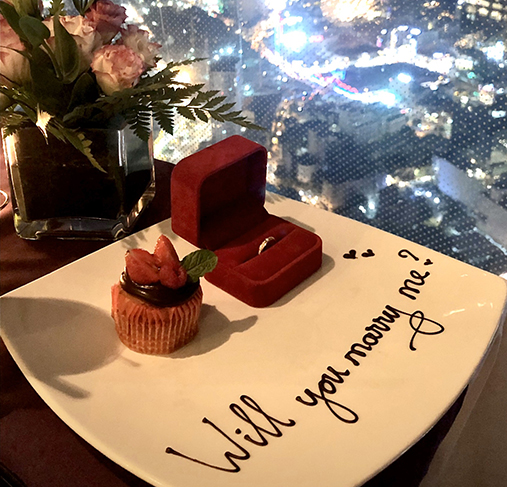 Will you marry me?